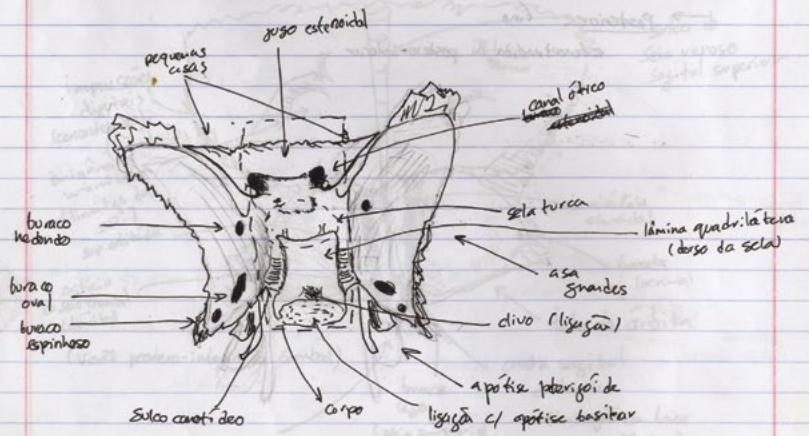 jugo esfenoidal
pequenas
asas
canal ótico
buraco
redondo
sela turca
lâmina quadrilátera
(dorso da sela)
asa
grandes
buraco
oval
buraco
espinhoso
clivo (ligação)
apófise pterigóide
Sulco carotídeo
corpo
ligação c/ apófise basilar